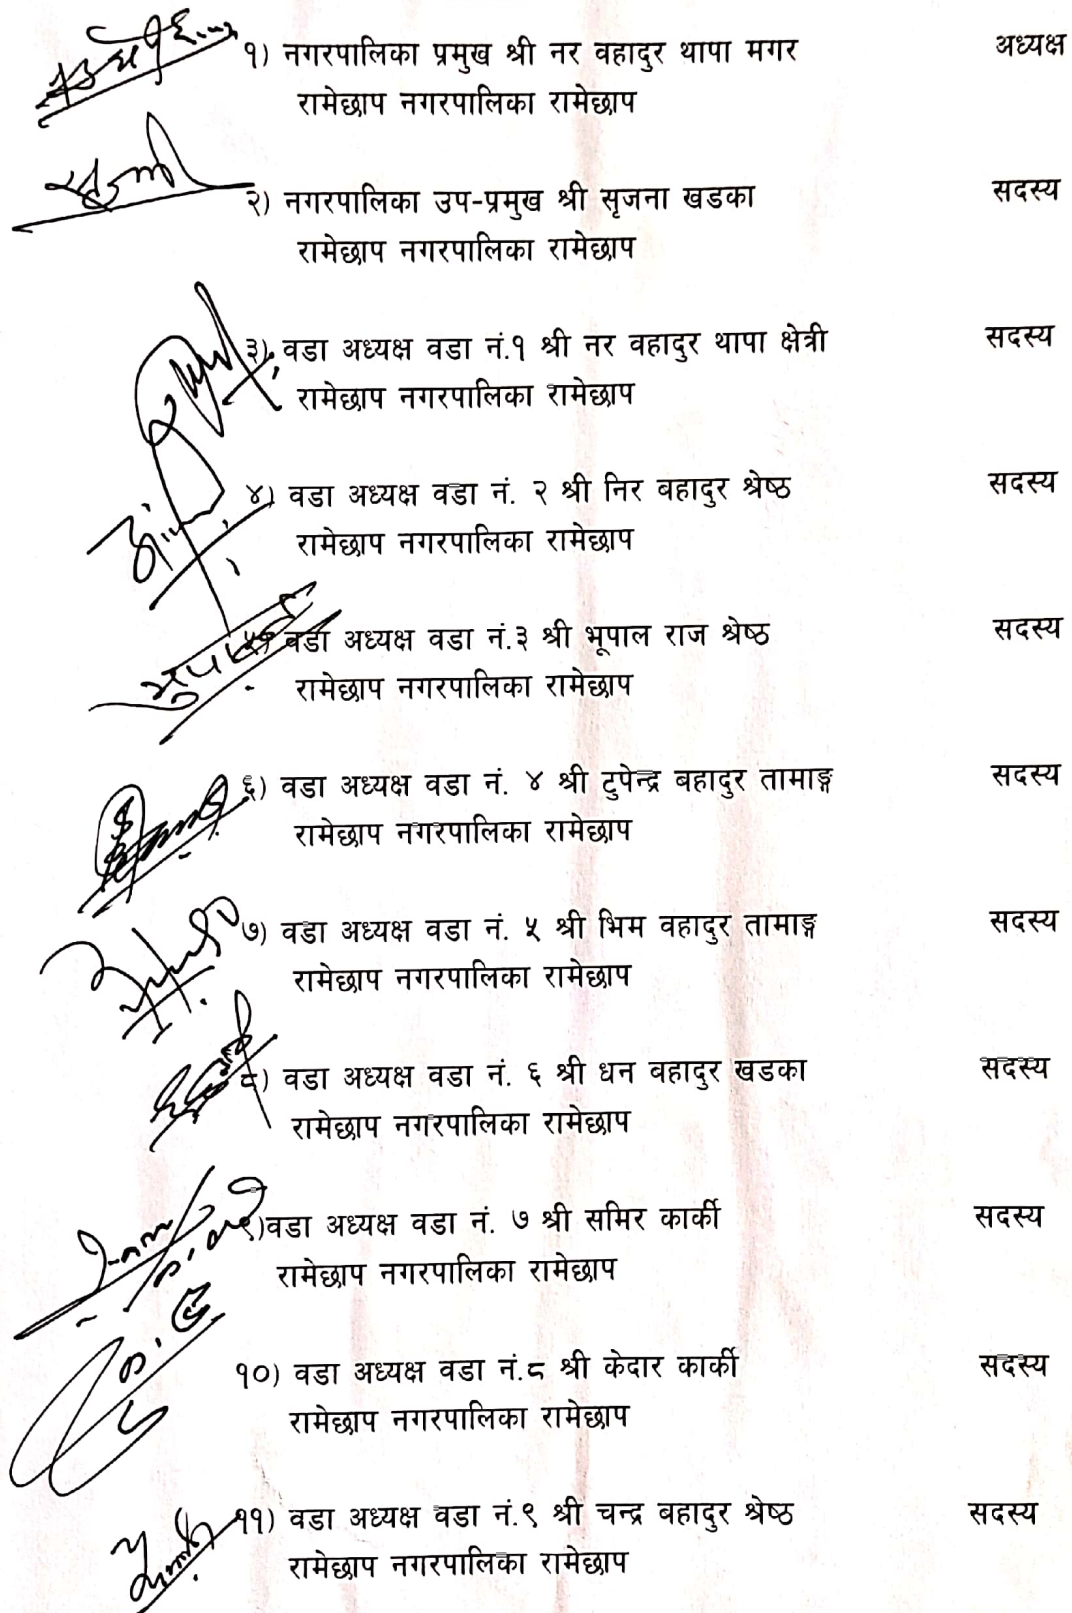 १) नगरपालिका प्रमुख श्री नर वहादुर थापा मगर अध्यक्ष
रामेछाप नगरपालिका रामेछाप
२) नगरपालिका उप-प्रमुख श्री सृजना खडका सदस्य
रामेछाप नगरपालिका रामेछाप
३) वडा अध्यक्ष वडा नं.१ श्री नर वहादुर थापा क्षेत्री सदस्य
रामेछाप नगरपालिका रामेछाप
४) वडा अध्यक्ष वडा नं. २ श्री निर बहादुर श्रेष्ठ सदस्य
रामेछाप नगरपालिका रामेछाप
५) वडा अध्यक्ष वडा नं.३ श्री भूपाल राज श्रेष्ठ सदस्य
रामेछाप नगरपालिका रामेछाप
६) वडा अध्यक्ष वडा नं. ४ श्री टुपेन्द्र बहादुर तामाङ्ग सदस्य
रामेछाप नगरपालिका रामेछाप
७) वडा अध्यक्ष वडा नं. ५ श्री भिम वहादुर तामाङ्ग सदस्य
रामेछाप नगरपालिका रामेछाप
८) वडा अध्यक्ष वडा नं. ६ श्री धन वहादुर खडका सदस्य
रामेछाप नगरपालिका रामेछाप
९)वडा अध्यक्ष वडा नं. ७ श्री समिर कार्की सदस्य
रामेछाप नगरपालिका रामेछाप
१०) वडा अध्यक्ष वडा नं.८ श्री केदार कार्की सदस्य
रामेछाप नगरपालिका रामेछाप
११) वडा अध्यक्ष वडा नं.९ श्री चन्द्र बहादुर श्रेष्ठ सदस्य
रामेछाप नगरपालिका रामेछाप